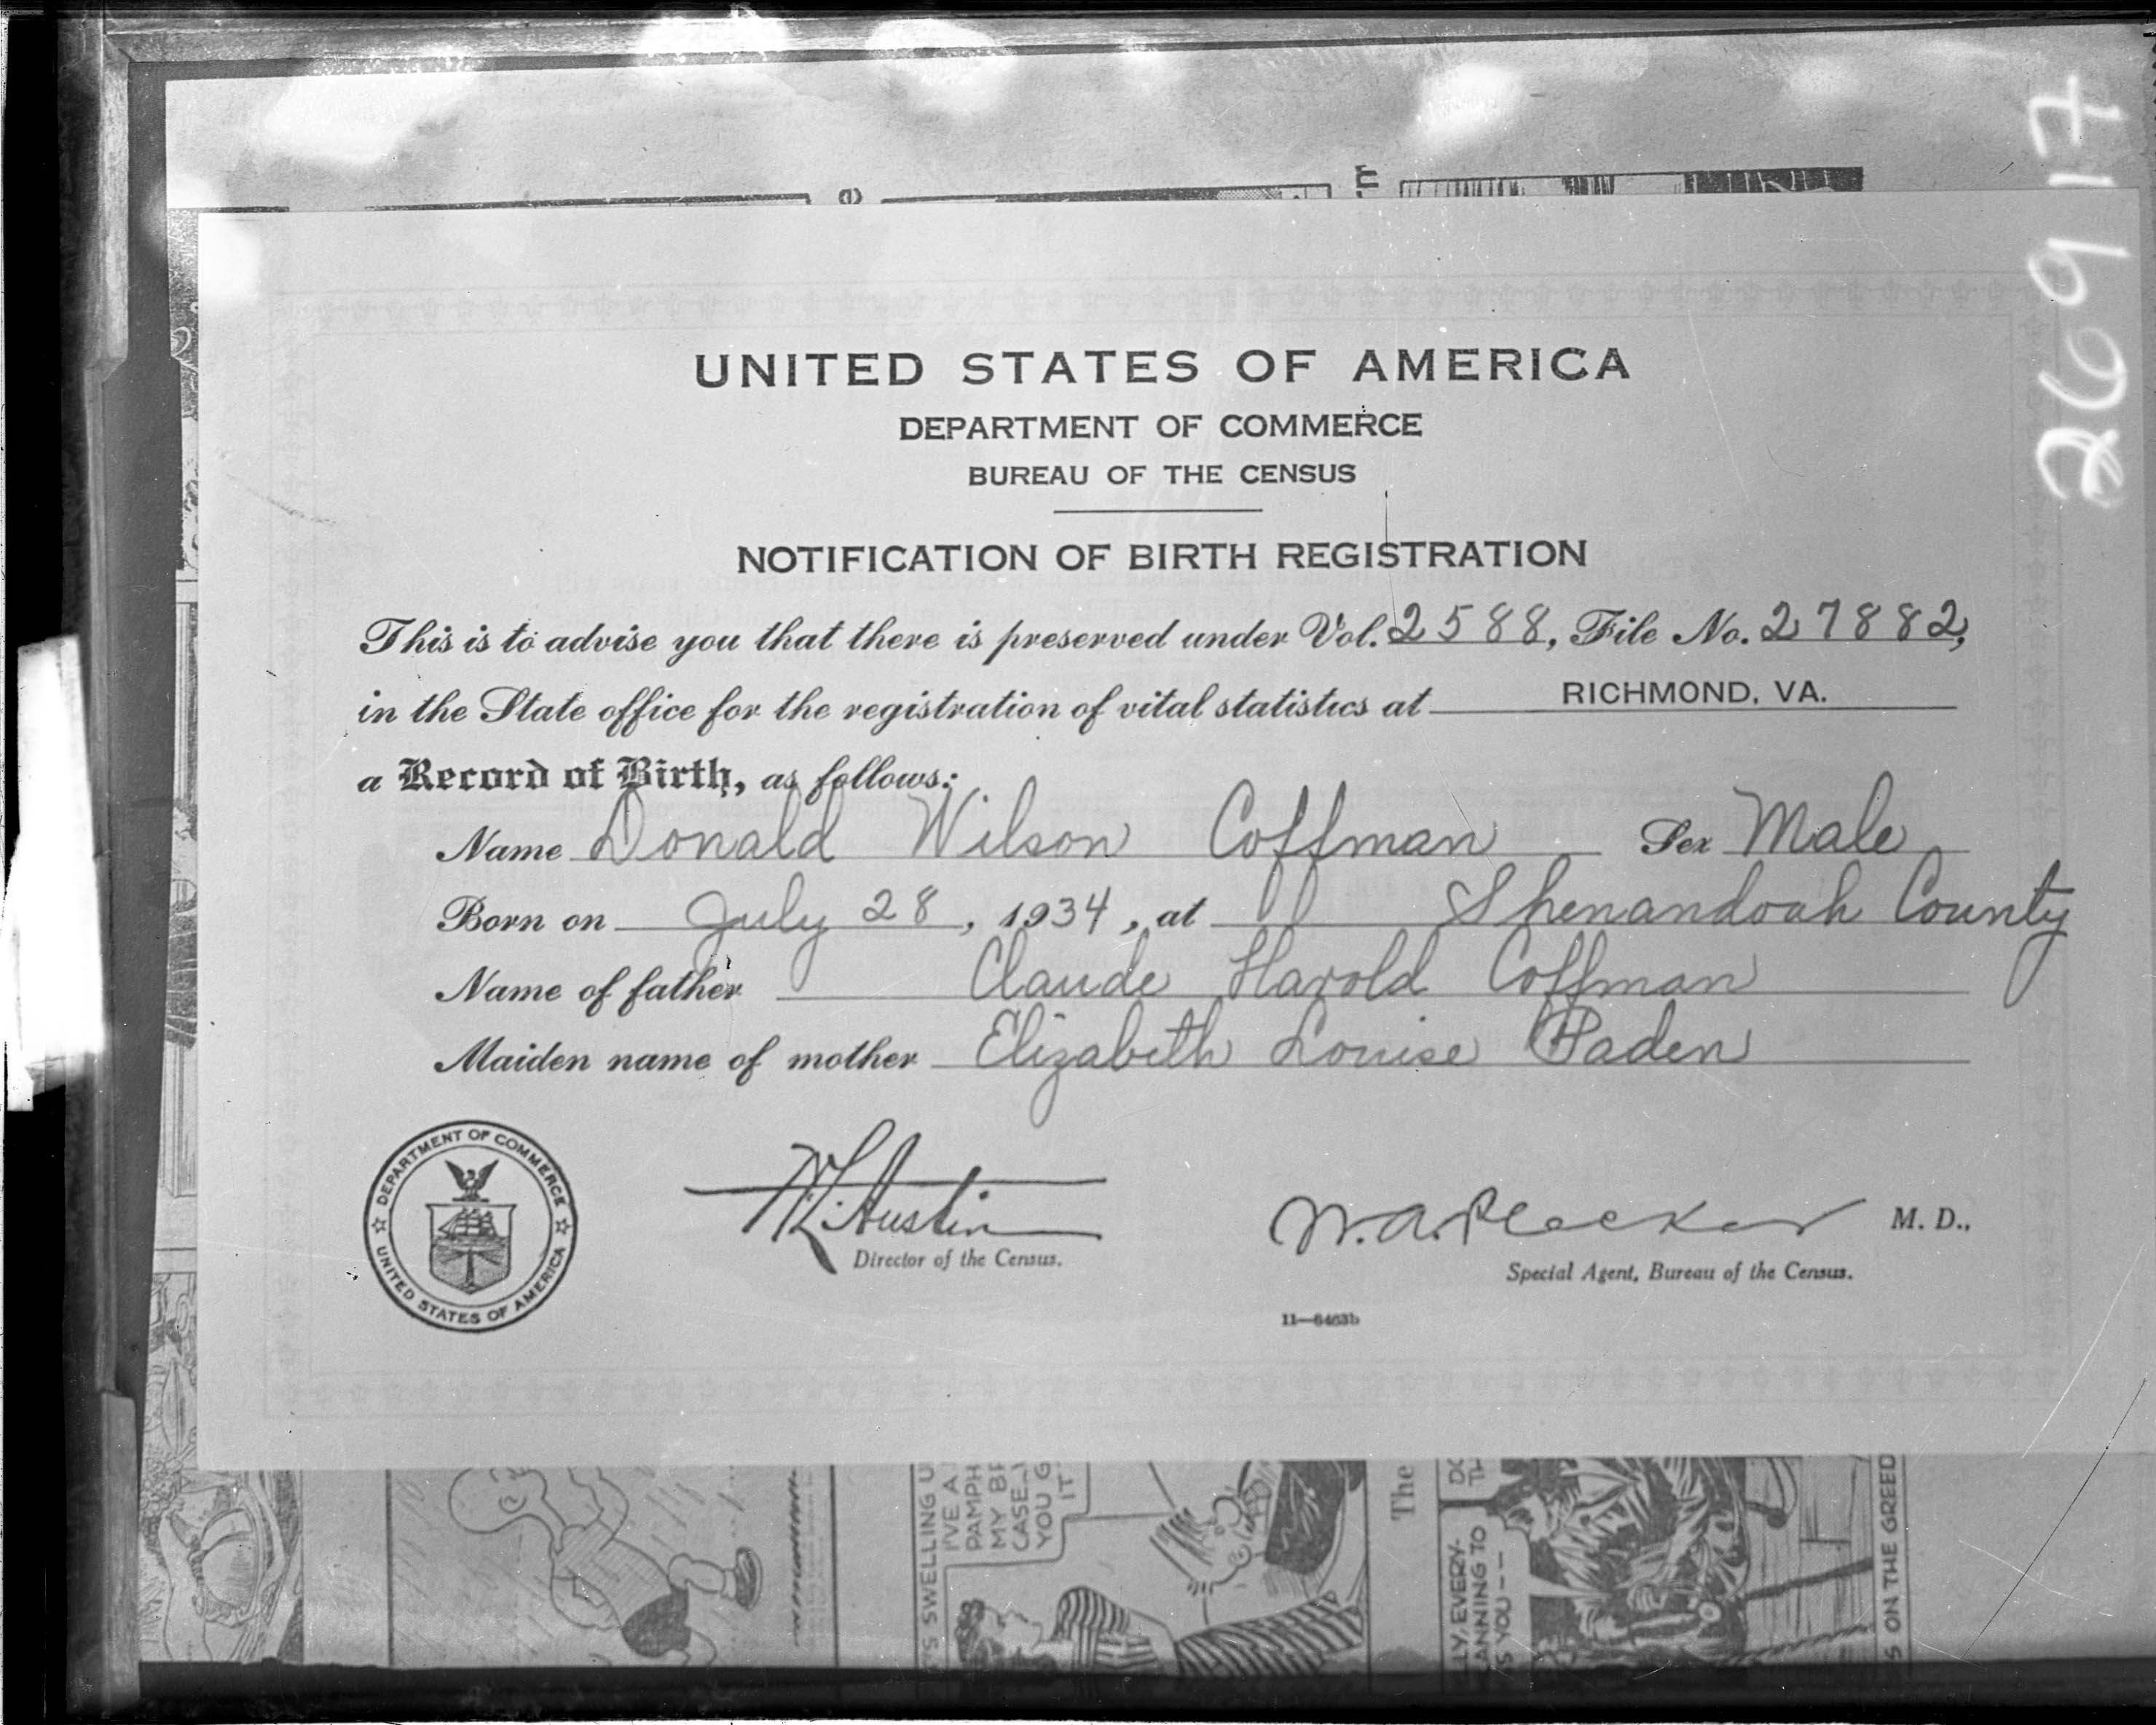 26917
UNITED STATES OF AMERICA
DEPARTMENT OF COMMERCE
BUREAU OF THE CENSUS
NOTIFICATION OF BIRTH REGISTRATION
This is to advise you that there is preserved under Vol. 2588, File No. 27882,
in the State office for the registration of vital statistics at RICHMOND, VA.
a Record of Birth, as follows:
Name Donald Wilson Coffman Sex Male
Born on July 28, 1934, at Shenandoah County
Name of father Claude Harold Coffman
Maiden name of mother Elizabeth Louise Paden
DEPARTMENT OF COMMERCE
UNITED STATES OF AMERICA
W. L. Austin
Director of the Census.
W. A. Plecker M. D.,
Special Agent, Bureau of the Census.
11—6463b
SWELLING
I'VE A
MY
CASE
YOU
IT
The
EVERY-
TO
YOU --
ON THE GREED